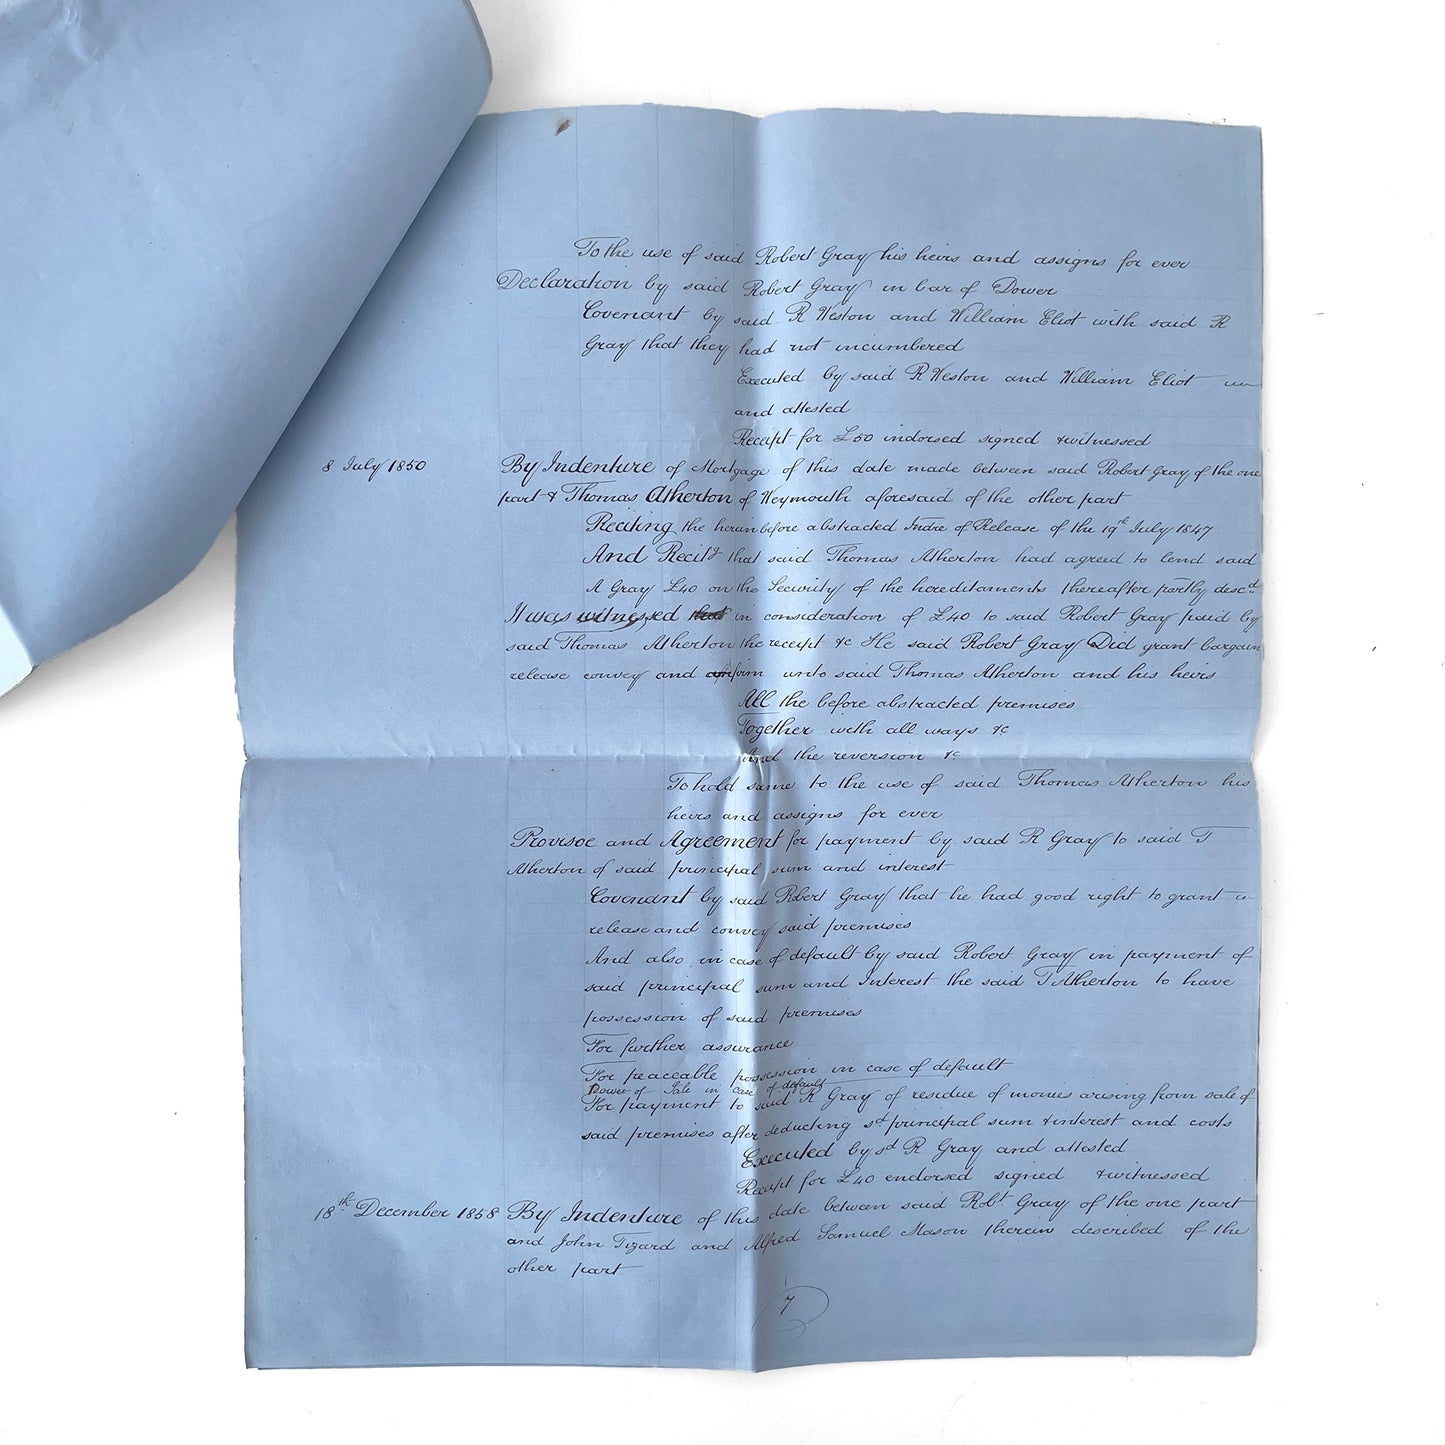 To the use of said Robert Gray his heirs and assigns for ever
Declaration by said Robert Gray in bar of Dower
Covenant by said R Weston and William Eliot with said R
Gray that they had not incumbered
Executed by said R Weston and William Eliot
and attested
Receipt for £50 indorsed signed & witnessed
8 July 1850 By Indenture of Mortgage of this date made between said Robert Gray of the one
part & Thomas Atherton of Weymouth aforesaid of the other part
Reciting the herein before abstracted Indre of Release of the 19th July 1847
And Recitg that said Thomas Atherton had agreed to lend said
R Gray £40 on the Security of the hereditaments thereafter partly descd
It was witnessed that in consideration of £40 to said Robert Gray paid by
said Thomas Atherton the receipt &c He said Robert Gray Did grant bargain
release convey and confirm unto said Thomas Atherton and his heirs
All the before abstracted premises
Together with all ways &c
And the reversion &c
To hold same to the use of said Thomas Atherton his
heirs and assigns for ever
Provisoe and Agreement for payment by said R Gray to said T
Atherton of said principal sum and interest
Covenant by said Robert Gray that he had good right to grant
release and convey said premises
And also in case of default by said Robert Gray in payment of
said principal sum and Interest the said T Atherton to have
possession of said premises
For further assurance
For peaceable possession in case of default
Power of Sale in case of default
For payment to said R Gray of residue of monies arising from sale of
said premises after deducting sd principal sum & interest and costs
Executed by sd R Gray and attested
Receipt for £40 endorsed signed & witnessed
18th December 1858 By Indenture of this date between said Robt Gray of the one part
and John Tizard and Alfred Samuel Mason therein described of the
other part
7